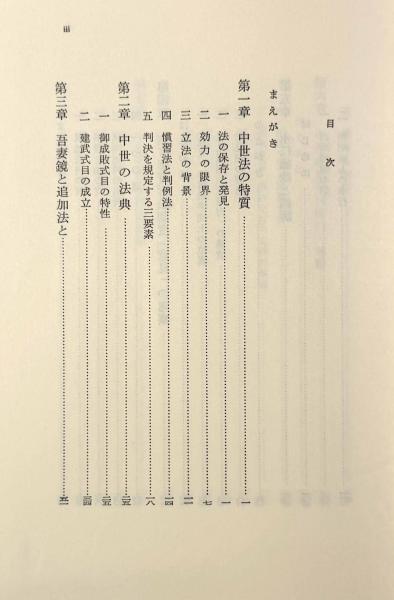 iii
目次
まえがき
第一章 中世法の特質……一
一 法の保存と発見……一
二 効力の限界……七
三 立法の背景
四 慣習法と判例法
五 判決を規定する三要素……一八
第二章 中世の法典
一 御成敗式目の特性
二 建武式目の成立
第三章 吾妻鏡と追加法と